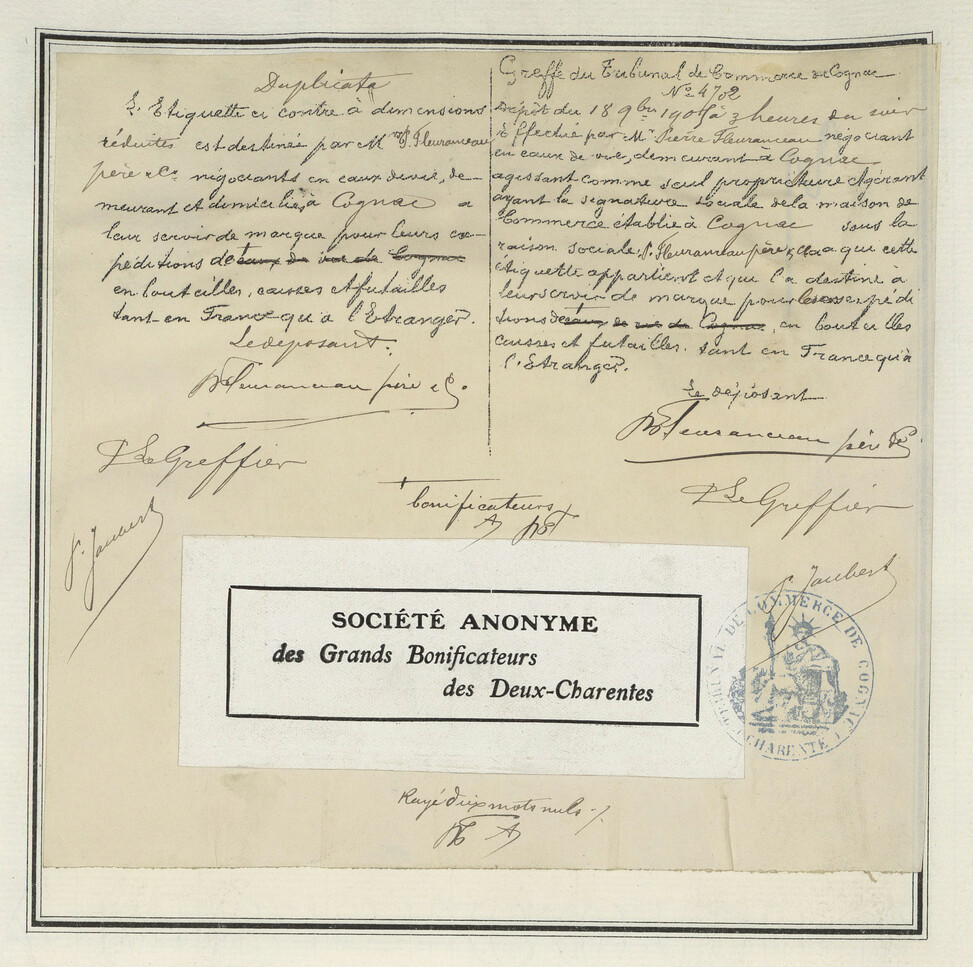 Duplicata
L'Etiquette ci contre à dimensions
réduites est destinée par Mrs P. Fleuranceau
père & Cie négociants en eaux de vie, de-
meurant et domiciliés à Cognac a
leur servir de marque pour leurs ex-
péditions de eaux de vie de Cognac
en bouteilles, caisses et futailles
tant en France qu'a l'Etranger.
Le déposant:
P. Fleuranceau père & Cie
P Le Greffier
Greffe du Tribunal de Commerce de Cognac
No 4702
Dépôt du 18 9bre à 3 heures du soir
Effectué par Mr Pierre Fleuranceau négociant
en eaux de vie, demeurant à Cognac
agissant comme seul propriétaire & gérant
ayant la signature sociale de la maison de
Commerce établie à Cognac sous la
raison sociale P. Fleuranceau père & Cie a que cette
étiquette appartient et que l'a destiné à
leur servir de marque pour expédi
tions de eaux de vie de Cognac, en bouteilles
caisses et futailles. tant en France qu'à
l'Etranger.
Le déposant
P. Fleuranceau père & Cie
P Le Greffier
bonificateurs
J. Joubert
J. Joubert
SOCIÉTÉ ANONYME
des Grands Bonificateurs
des Deux-Charentes
TRIBUNAL DE COMMERCE DE COGNAC
(CHARENTE)
Rayé dix mots nuls